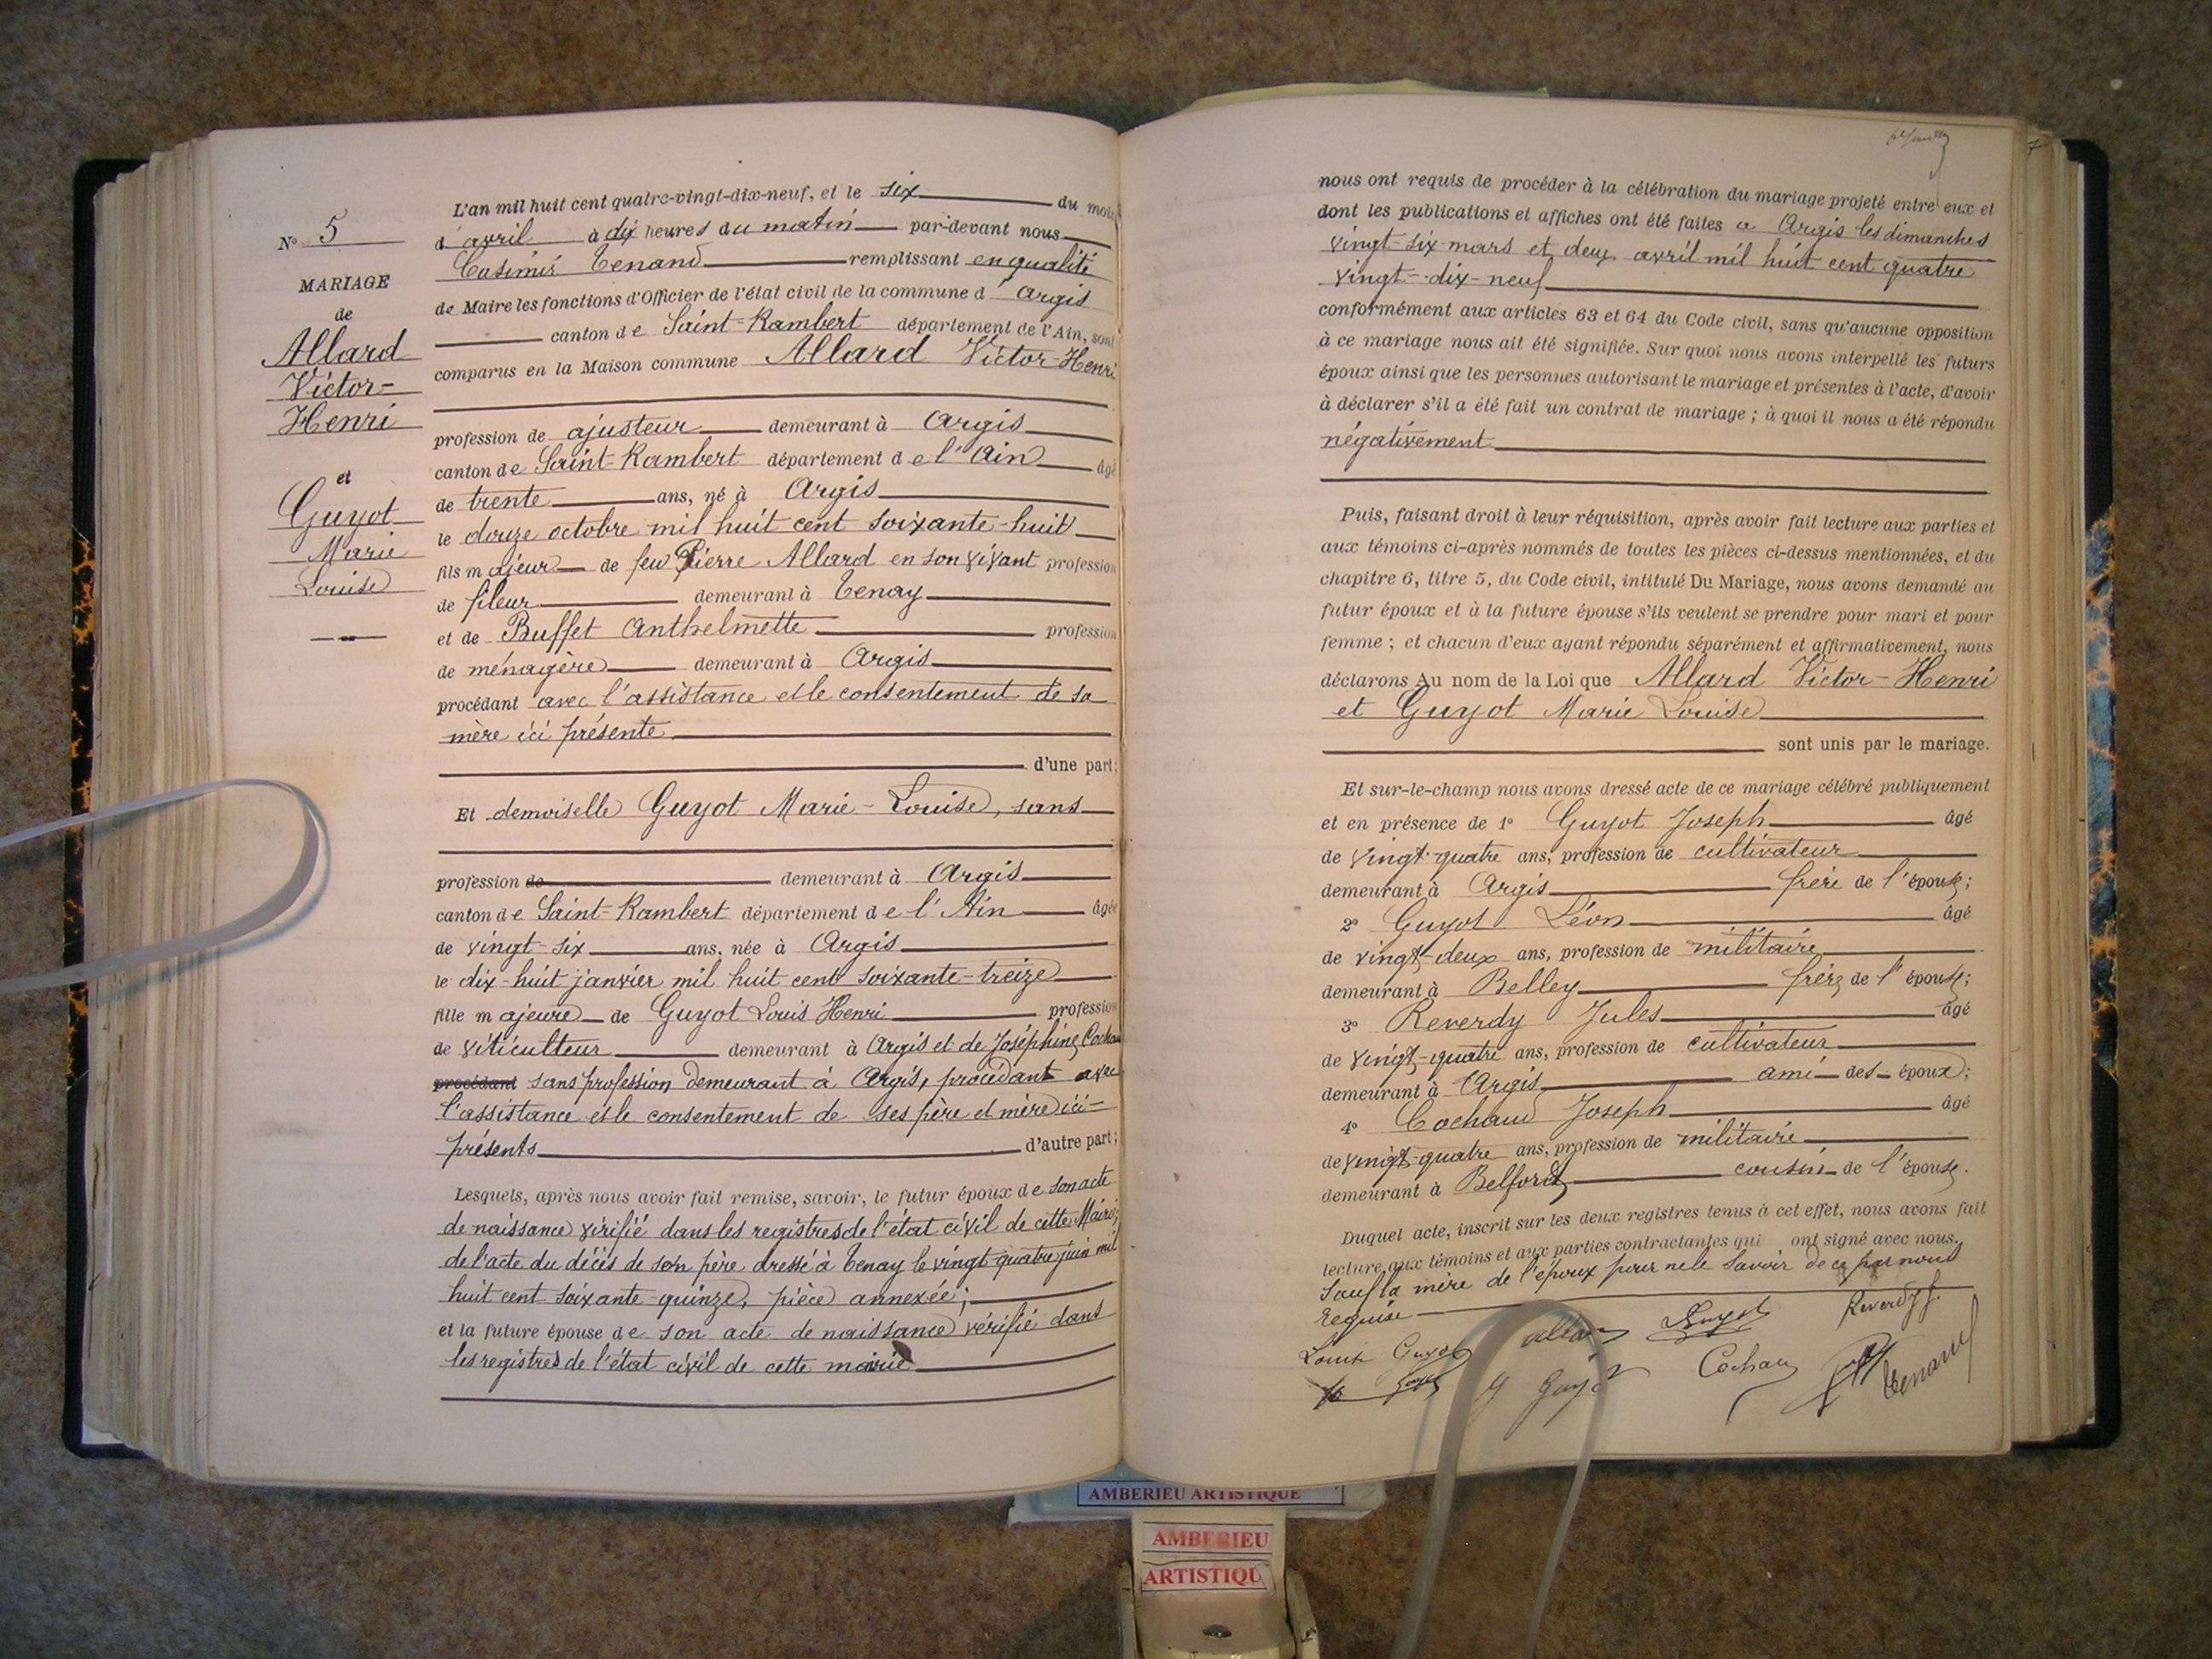 N° 5
MARIAGE
de
Allard
Victor-
Henri
et
Guyot
Marie
Louise
L'an mil huit cent quatre-vingt-dix-neuf, et le six du mois
d'avril à dix heures du matin par-devant nous
Casimir Tenand remplissant en qualité
de Maire les fonctions d'Officier de l'état civil de la commune d'Argis
canton de Saint-Rambert département de l'Ain, sont
comparus en la Maison commune Allard Victor-Henri
profession de ajusteur demeurant à Argis
canton de Saint-Rambert département de l'Ain âgé
de trente ans, né à Argis
le douze octobre mil huit cent soixante-huit
fils majeur de feu Pierre Allard en son vivant profession
de fileur demeurant à Tenay
et de Buffet Anthelmette profession
de ménagère demeurant à Argis
procédant avec l'assistance et le consentement de sa
mère ici présente
d'une part;
Et demoiselle Guyot Marie-Louise, sans
profession de demeurant à Argis
canton de Saint-Rambert département de l'Ain âgée
de vingt-six ans, née à Argis
le dix-huit janvier mil huit cent soixante-treize
fille majeure de Guyot Louis Henri profession
de viticulteur demeurant à Argis et de Joséphine Cochau
procédant sans profession demeurant à Argis, procédant avec
l'assistance et le consentement de ses père et mère ici-
présents d'autre part;
Lesquels, après nous avoir fait remise, savoir, le futur époux de son acte
de naissance vérifié dans les registres de l'état civil de cette Mairie;
de l'acte du décès de son père dressé à Tenay le vingt-quatre juin mil
huit cent soixante-quinze, pièce annexée;
et la future épouse de son acte de naissance vérifié dans
les registres de l'état civil de cette mairie
7
nous ont requis de procéder à la célébration du mariage projeté entre eux et
dont les publications et affiches ont été faites à Argis les dimanches
vingt-six mars et deux avril mil huit cent quatre
vingt-dix-neuf
conformément aux articles 63 et 64 du Code civil, sans qu'aucune opposition
à ce mariage nous ait été signifiée. Sur quoi nous avons interpellé les futurs
époux ainsi que les personnes autorisant le mariage et présentes à l'acte, d'avoir
à déclarer s'il a été fait un contrat de mariage; à quoi il nous a été répondu
négativement
Puis, faisant droit à leur réquisition, après avoir fait lecture aux parties et
aux témoins ci-après nommés de toutes les pièces ci-dessus mentionnées, et du
chapitre 6, titre 5, du Code civil, intitulé Du Mariage, nous avons demandé au
futur époux et à la future épouse s'ils veulent se prendre pour mari et pour
femme; et chacun d'eux ayant répondu séparément et affirmativement, nous
déclarons Au nom de la Loi que Allard Victor-Henri
et Guyot Marie Louise
sont unis par le mariage.
Et sur-le-champ nous avons dressé acte de ce mariage célébré publiquement
et en présence de 1° Guyot Joseph âgé
de vingt-quatre ans, profession de cultivateur
demeurant à Argis frère de l'épouse;
2° Guyot Léon âgé
de vingt-deux ans, profession de militaire
demeurant à Belley frère de l'épouse;
3° Reverdy Jules âgé
de vingt-quatre ans, profession de cultivateur
demeurant à Argis ami des époux;
4° Cochaud Joseph âgé
de vingt-quatre ans, profession de militaire
demeurant à Belford cousin de l'épouse.
Duquel acte, inscrit sur les deux registres tenus à cet effet, nous avons fait
lecture aux témoins et aux parties contractantes qui ont signé avec nous.
Sauf la mère de l'époux pour ne le savoir de ce par nous
requise
Guyot Reverdy J.
Louise Guyot
Guyot Cochau Tenand
AMBERIEU ARTISTIQUE
AMBERIEU
ARTISTIQU